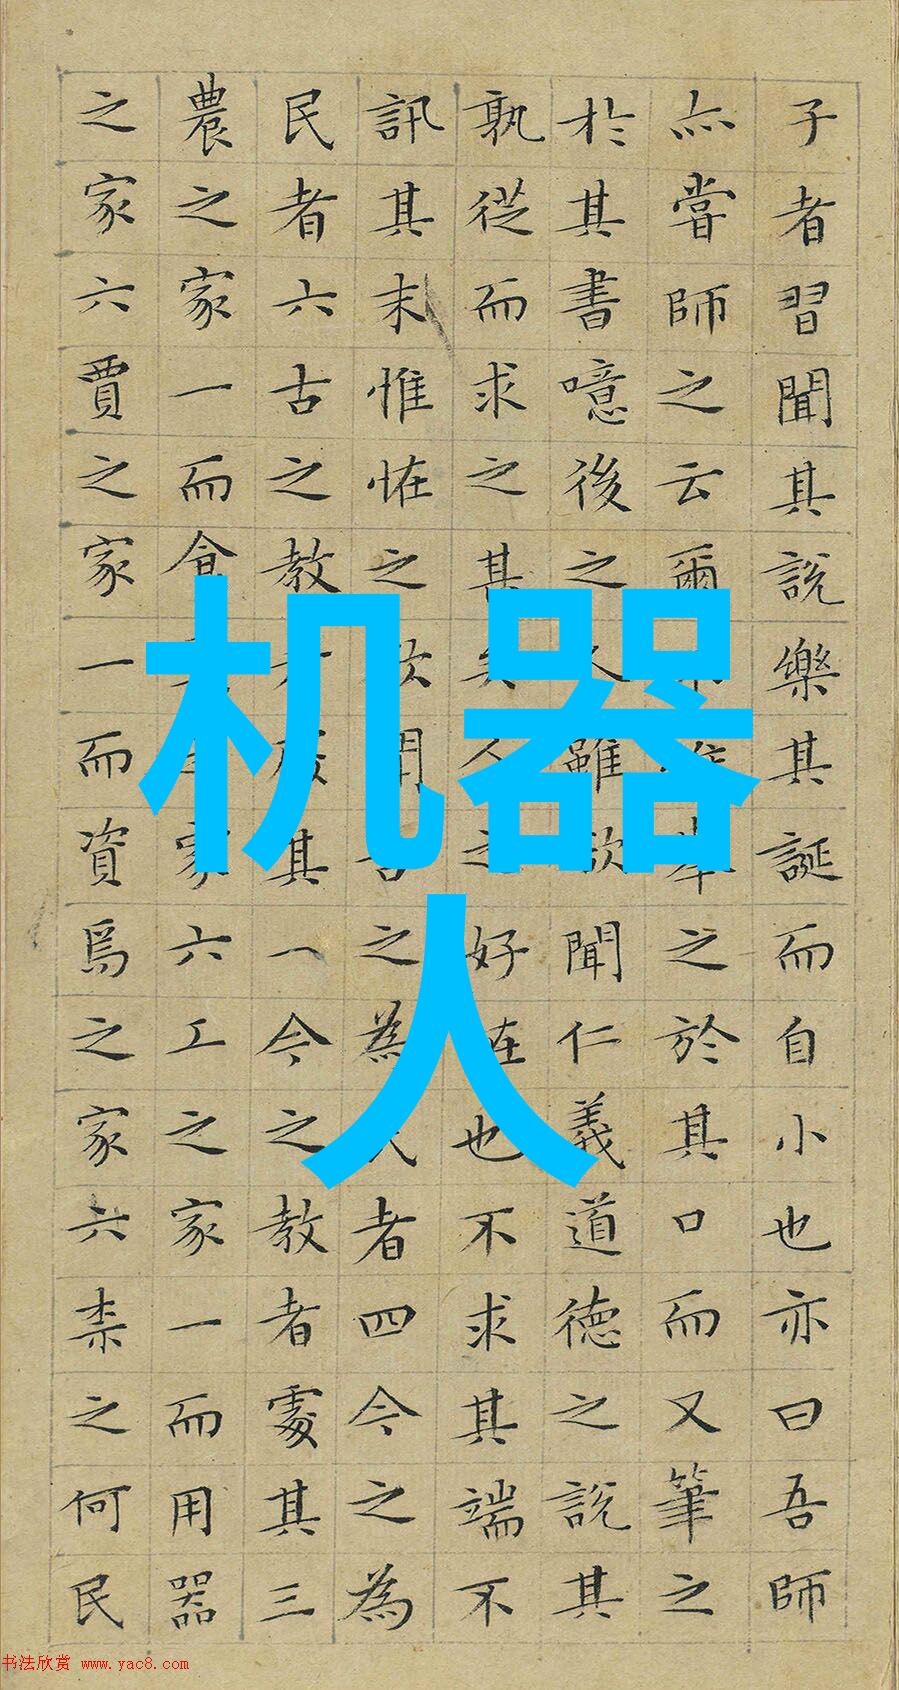 子者習聞其說樂其誕而自小也亦曰吾師
亦嘗師之云爾不惟舉之於其口而又筆之
於其書噫後之人雖欲聞仁義道德之說其
孰從而求之甚矣人之好怪也不求其端不
訊其末惟怪之欲聞古之為民者四今之為
民者六古之教者處其一今之教者處其三
農之家一而食之家六工之家一而用器
之家六賈之家一而資焉之家六柰之何民
机器
人
书法欣赏 www.yac8.com